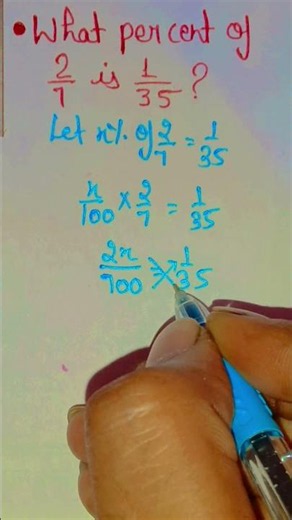 • What percent of
2/7 is 1/35 ?
Let x% of 2/7 = 1/35
x/100 × 2/7 = 1/35
2x/700 = 1/35